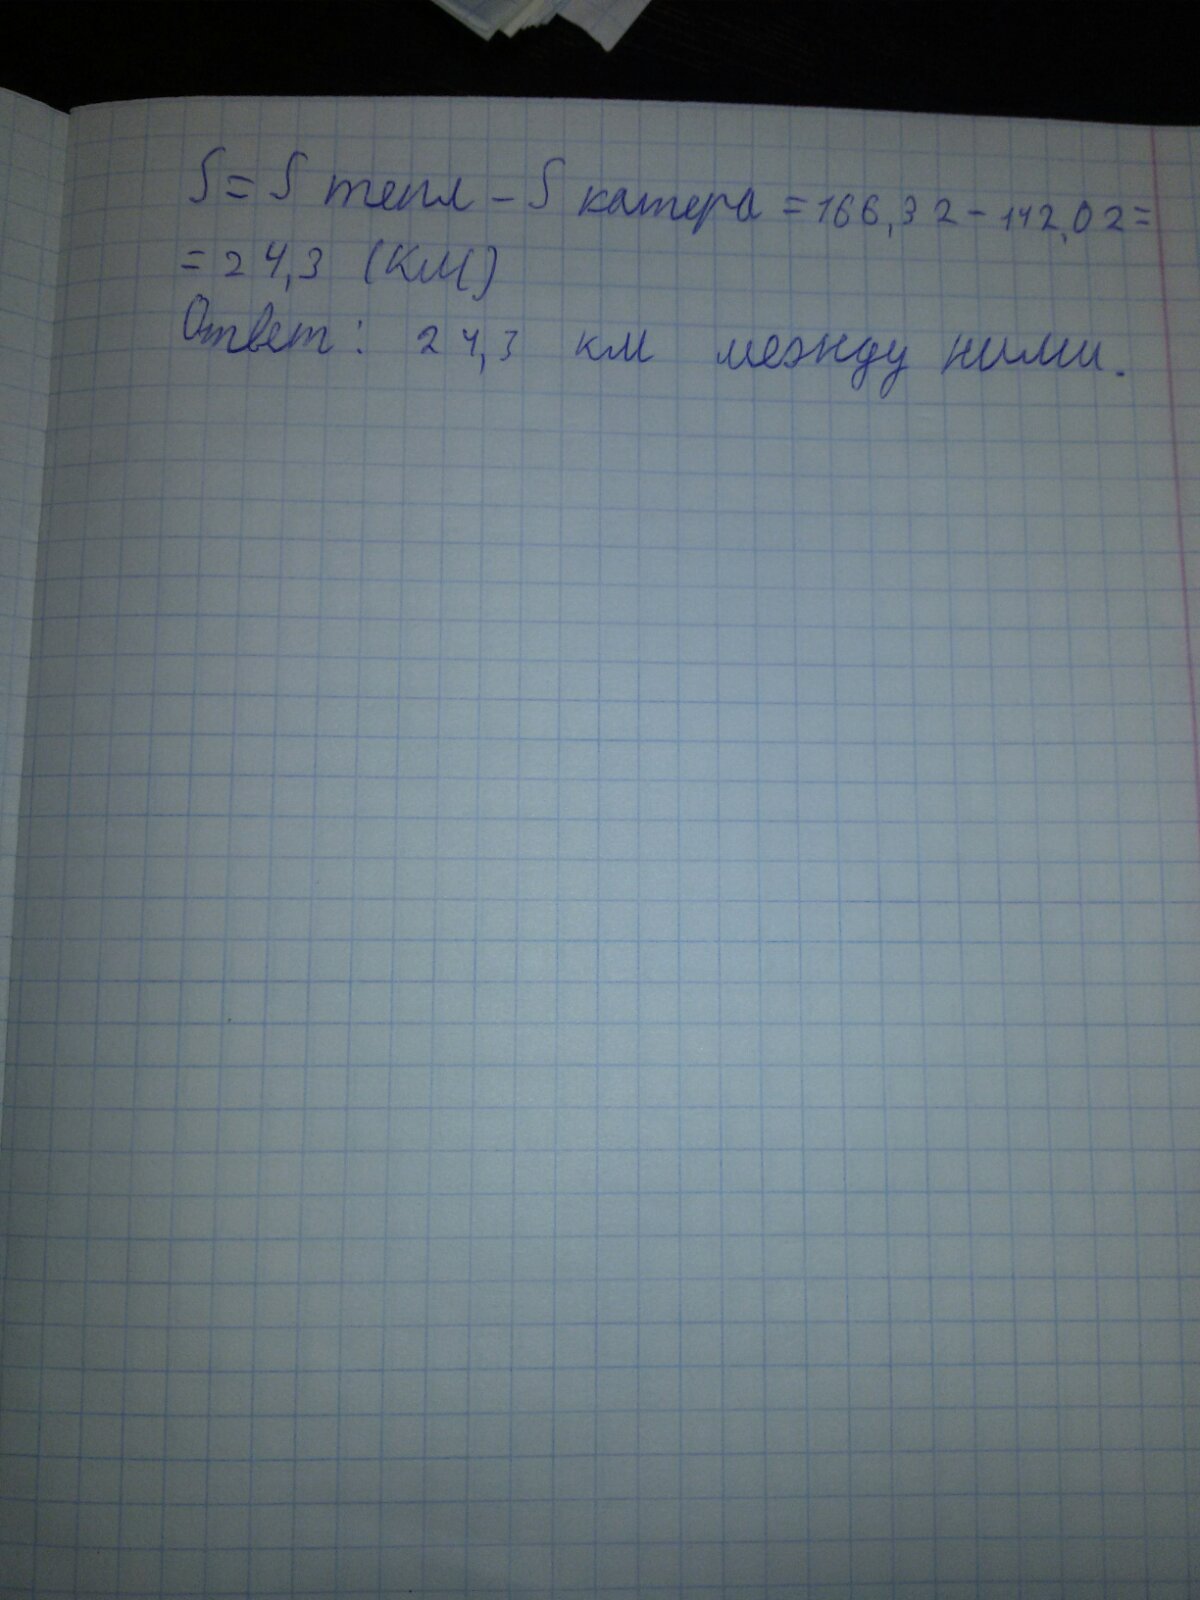 S = S тепл - S катера = 166,32 - 142,02 =
= 24,3 (КМ)
Ответ: 24,3 км между ними.